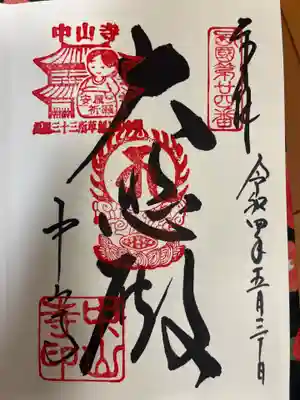 奉拝
西國第廿四番
令和四年五月三十日
大悲殿
中山寺
安産祈願
中山寺
中山寺印